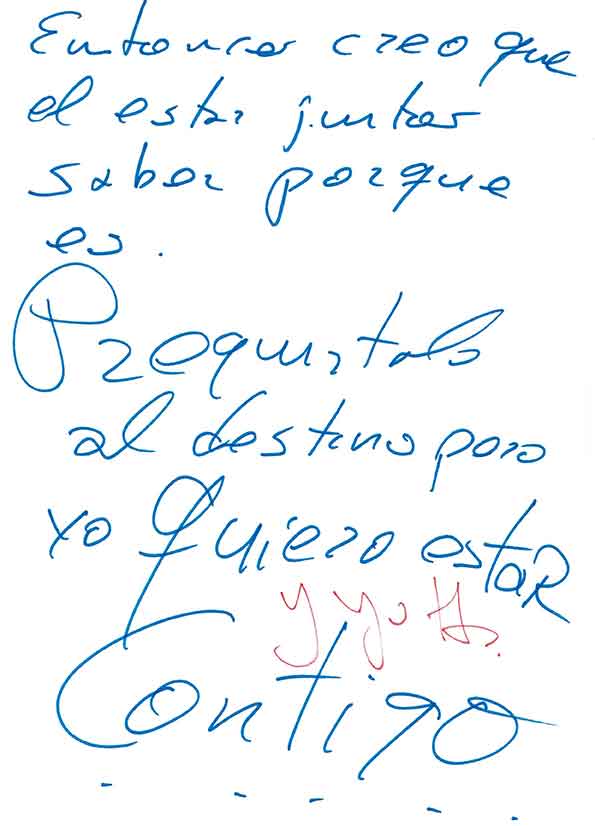 Entonces creo que
el estar juntos
saber porque
es.
Preguntalo
al destino pero
yo Quiero estaR
y yo
Contigo